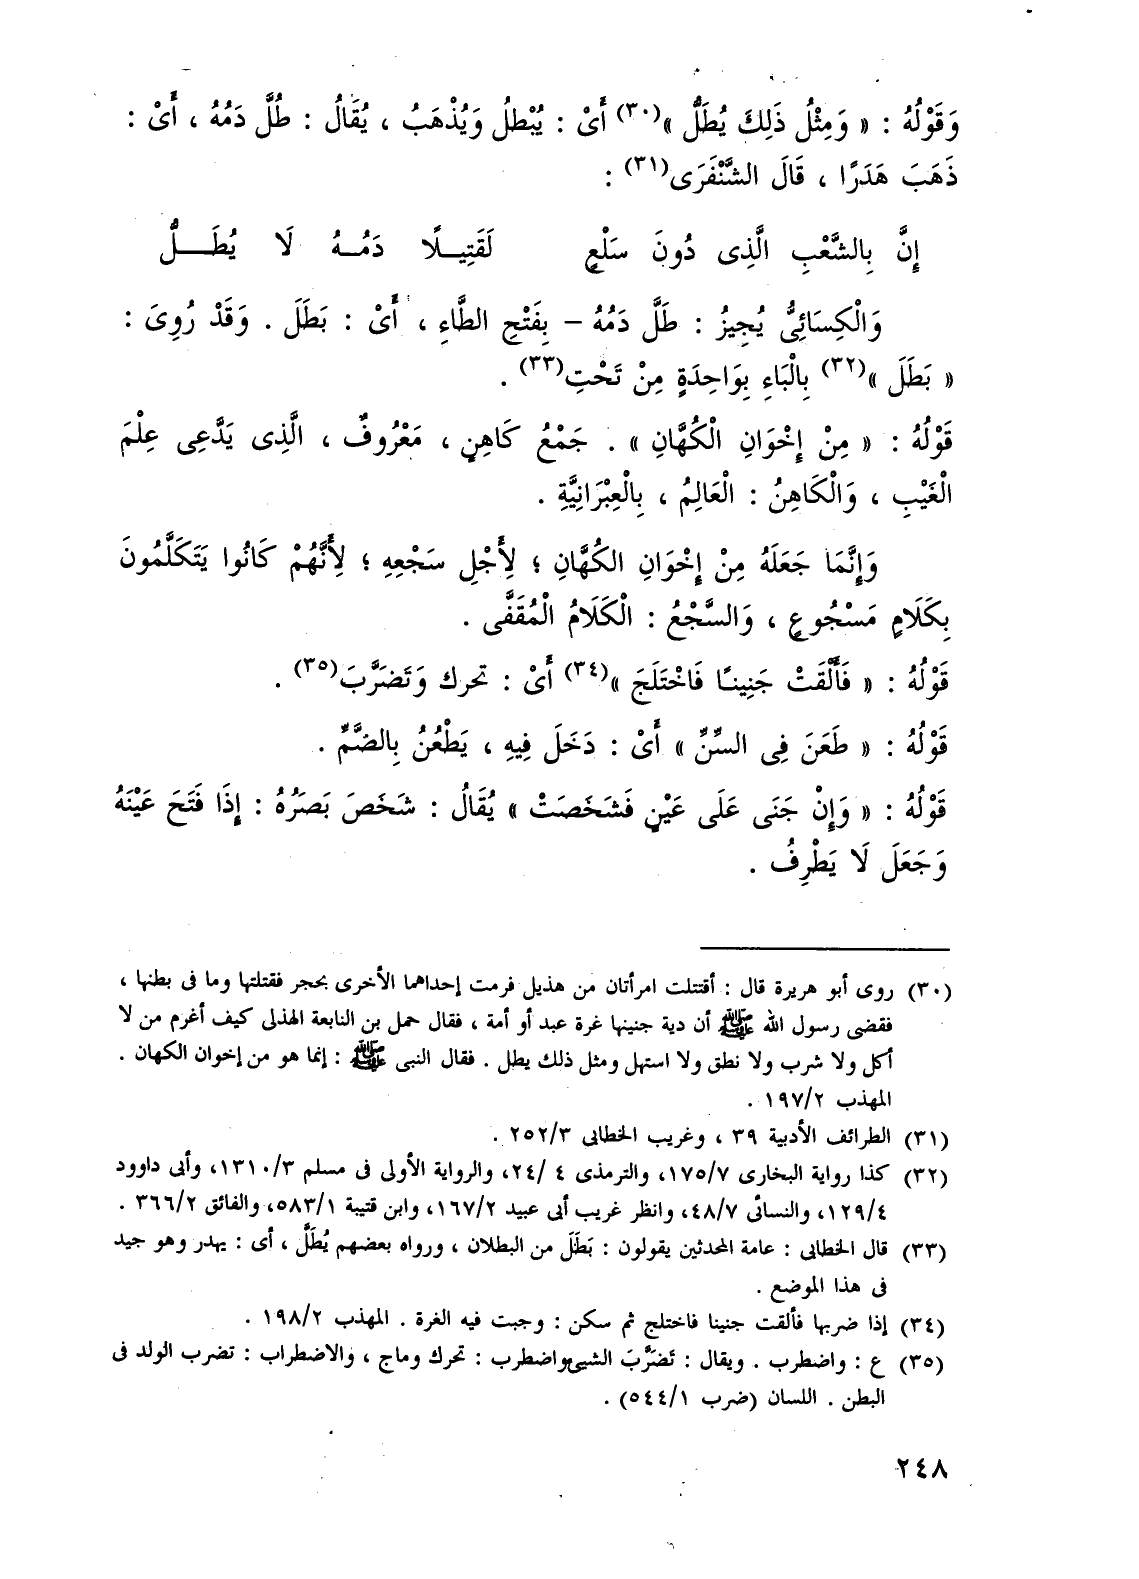 وَقَوْلُهُ : « وَمِثْلُ ذَلِكَ يُطَلُّ »(٣٠) أَىْ : يُبْطلُ وَيُذْهَبُ ، يُقَالُ : طُلَّ دَمُهُ ، أَىْ :
ذَهَبَ هَدَرًا ، قَالَ الشَّنْفَرَى(٣١) :
إِنَّ بِالشَّعْبِ الَّذِى دُونَ سَلْعٍ لَقَتِيلًا دَمُهُ لَا يُطَلُّ
وَالْكِسَائِىُّ يُجِيزُ : طَلَّ دَمُهُ – بِفَتْحِ الطَّاءِ ، أَىْ : بَطَلَ . وَقَدْ رُوِىَ :
« بَطَلَ »(٣٢) بِالْبَاءِ بِوَاحِدَةٍ مِنْ تَحْتِ(٣٣) .
قَوْلُهُ : « مِنْ إِخْوَانِ الْكُهَّانِ » . جَمْعُ كَاهِنٍ ، مَعْرُوفٌ ، الَّذِى يَدَّعِى عِلْمَ
الْغَيْبِ ، وَالْكَاهِنُ : الْعَالِمُ ، بِالْعِبْرَانِيَّةِ .
وَإِنَّمَا جَعَلَهُ مِنْ إِخْوَانِ الكُهَّانِ ؛ لِأَجْلِ سَجْعِهِ ؛ لِأَنَّهُمْ كَانُوا يَتَكَلَّمُونَ
بِكَلَامٍ مَسْجُوعٍ ، وَالسَّجْعُ : الْكَلَامُ الْمُقَفَّى .
قَوْلُهُ : « فَأَلْقَتْ جَنِينًا فَاخْتَلَجَ »(٣٤) أَىْ : تحرك وَتَضَرَّبَ(٣٥) .
قَوْلُهُ : « طَعَنَ فِى السِّنِّ » أَىْ : دَخَلَ فِيهِ ، يَطْعُنُ بِالضَّمِّ .
قَوْلُهُ : « وَإِنْ جَنَى عَلَى عَيْنٍ فَشَخَصَتْ » يُقَالُ : شَخَصَ بَصَرُهُ : إِذَا فَتَحَ عَيْنَهُ
وَجَعَلَ لَا يَطْرِفُ .
(٣٠) روى أبو هريرة قال : أقتتلت امرأتان من هذيل فرمت إحداهما الأخرى بحجر فقتلتها وما فى بطنها ،
فقضى رسول الله ﷺ أن دية جنينها غرة عبد أو أمة ، فقال حمل بن النابعة الهذلى كيف أغرم من لا
أكل ولا شرب ولا نطق ولا استهل ومثل ذلك يطل . فقال النبى ﷺ : إنما هو من إخوان الكهان .
المهذب ١٩٧/٢ .
(٣١) الطرائف الأدبية ٣٩ ، وغريب الخطابى ٢٥٢/٣ .
(٣٢) كذا رواية البخارى ١٧٥/٧، والترمذى ٤ /٢٤، والرواية الأولى فى مسلم ١٣١٠/٣، وأبى داوود
١٢٩/٤، والنسائى ٤٨/٧، وانظر غريب أبى عبيد ١٦٧/٢، وابن قتيبة ٥٨٣/١، والفائق ٣٦٦/٢ .
(٣٣) قال الخطابى : عامة المحدثين يقولون : بَطَلَ من البطلان ، ورواه بعضهم يُطَلَّ ، أى : يهدر وهو جيد
فى هذا الموضع .
(٣٤) إذا ضربها فألقت جنينا فاختلج ثم سكن : وجبت فيه الغرة . المهذب ١٩٨/٢ .
(٣٥) ع : واضطرب . ويقال : تَضَرَّبَ الشيئ واضطرب : تحرك وماج ، والاضطراب : تضرب الولد فى
البطن . اللسان (ضرب ٥٤٤/١) .
٢٤٨